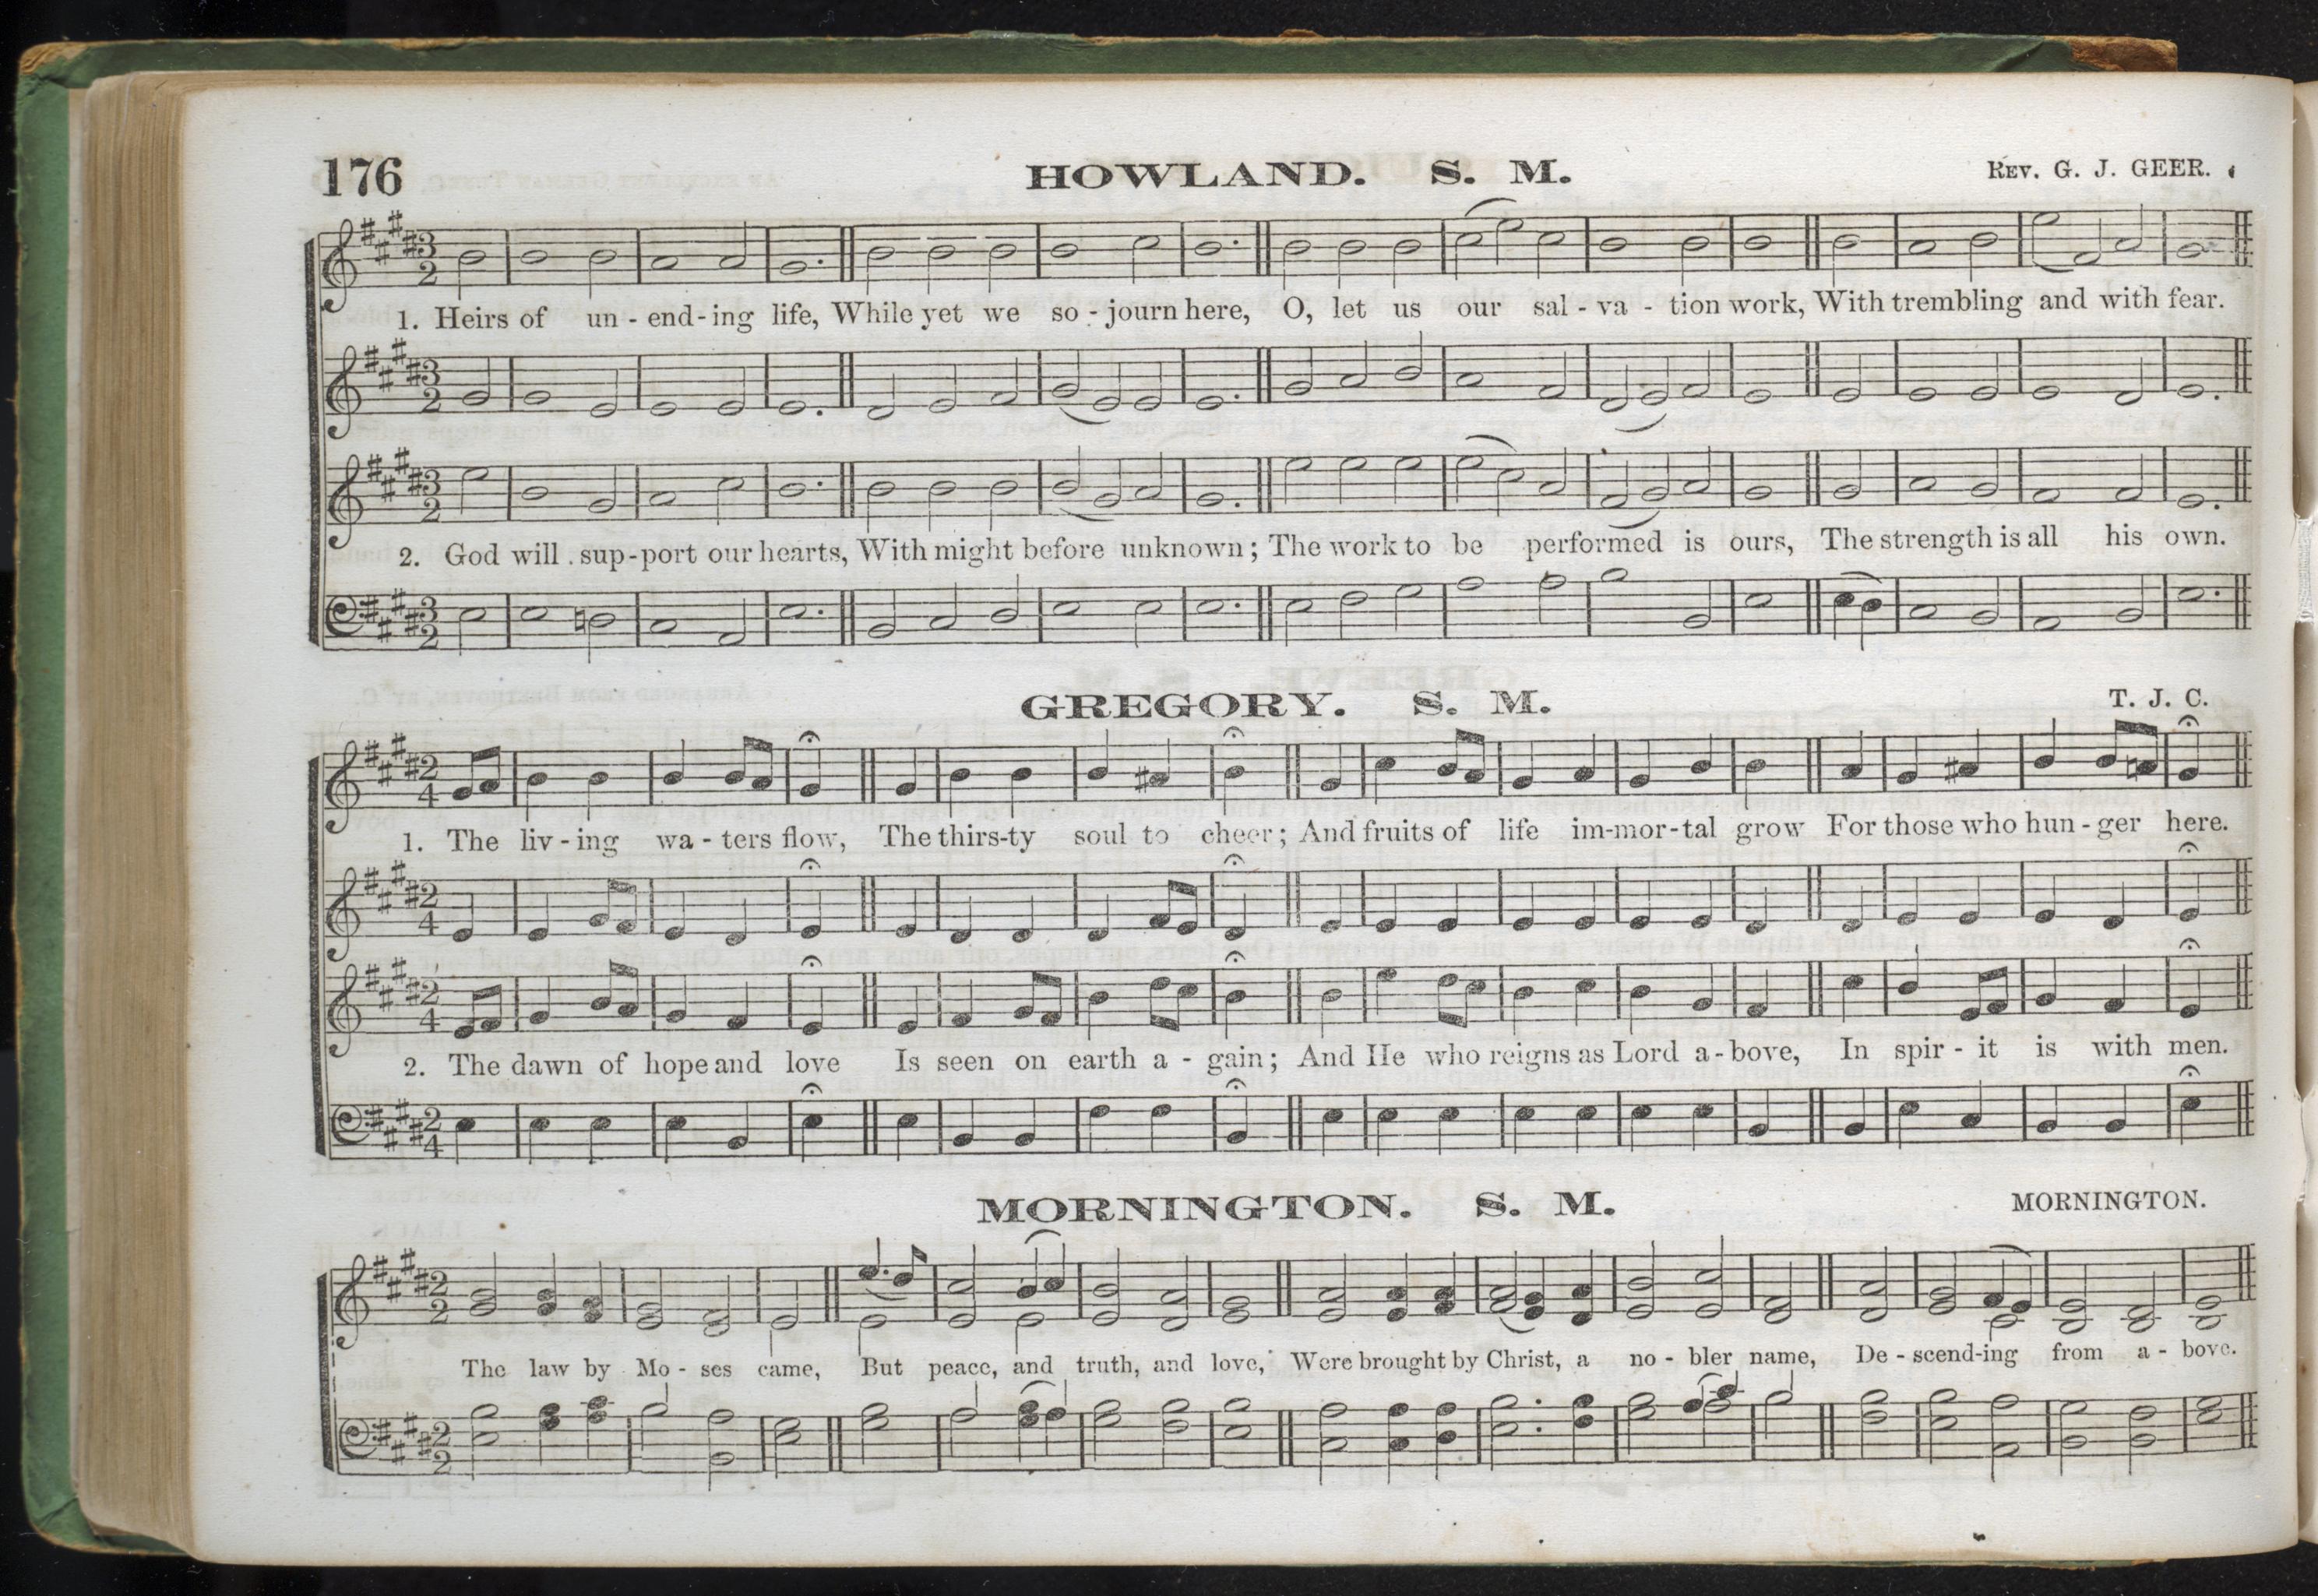 176
HOWLAND. S. M.
REV. G. J. GEER.
1. Heirs of un - end - ing life, While yet we so - journ here, O, let us our sal - va - tion work, With trembling and with fear.
2. God will sup - port our hearts, With might before unknown; The work to be performed is ours, The strength is all his own.
GREGORY. S. M.
T. J. C.
1. The liv - ing wa - ters flow, The thirs - ty soul to cheer; And fruits of life im - mor - tal grow For those who hun - ger here.
2. The dawn of hope and love Is seen on earth a - gain; And He who reigns as Lord a - bove, In spir - it is with men.
MORNINGTON. S. M.
MORNINGTON.
The law by Mo - ses came, But peace, and truth, and love, Were brought by Christ, a no - bler name, De - scend - ing from a - bove.